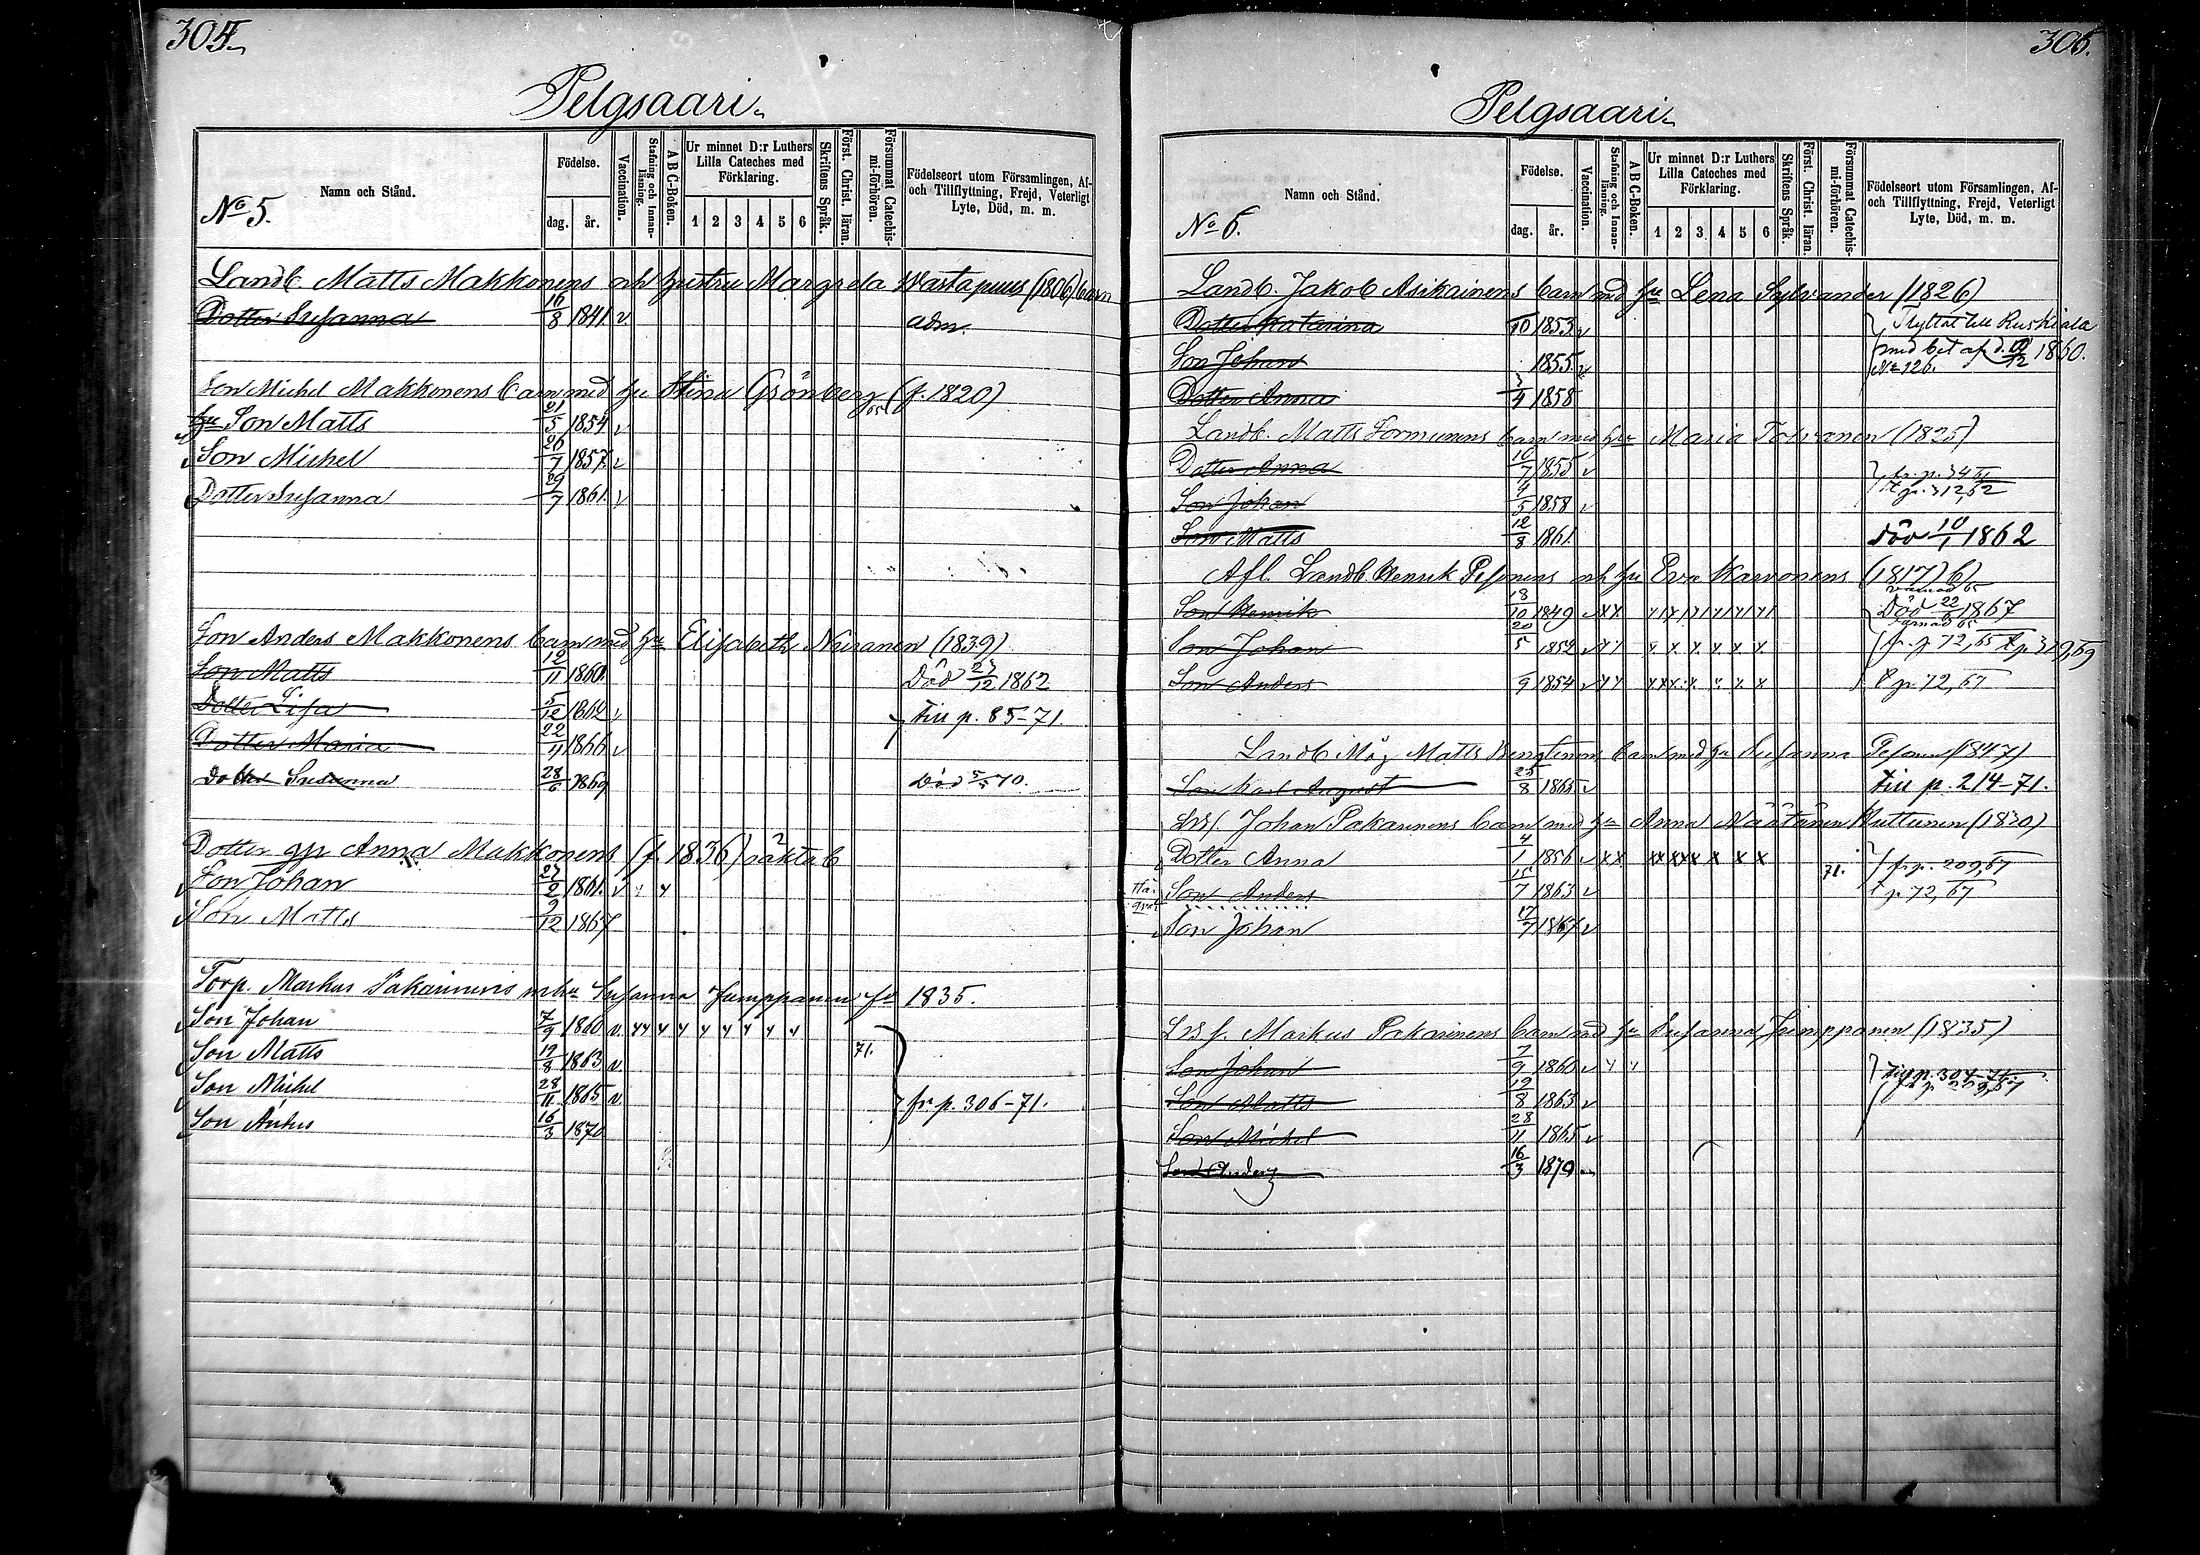 304.
Pelgsaari
No 5.
Namn och Stånd.
Födelse.
dag. år.
Vaccination.
Stafning och Innanläsning.
A B C-Boken.
Ur minnet D:r Luthers Lilla Cateches med Förklaring.
1 2 3 4 5 6
Skriftens Språk.
Först. Christ. läran.
Försummat Catechismi-förhören.
Födelseort utom Församlingen, Af- och Tillflyttning, Frejd, Veterligt Lyte, Död, m. m.
Landb. Matts Makkonens och hustru Margreta Wartapuus (1806) barn
Dotter Susanna 16/8 1841. v. adm.
Son Michel Makkonens barn med hu Stina Grönberg (f. 1820)
Son Matts 21/5 1854 v
Son Michel 26/7 1857 v
Dotter Susanna 29/7 1861. v
Son Anders Makkonens barn med hu Elisabeth Niiranen (1839)
Son Matts 12/11 1860. Död 23/12 1862
Dotter Lisa 5/12 1862 v
till p. 85-71.
Dotter Maria 22/4 1866 v
Dotter Susanna 28/6 1869 Död 70.
Dotter gju Anna Makkonens (f. 1836) oäkta b
Son Johan 27/2 1861. v
Son Matts 9/12 1867
Torp. Markus Pakarinens mhu Susanna Jumppanen fd 1835.
Son Johan 7/9 1860 v.
Son Matts 19/8 1863 v 71.
Son Michel 28/11 1865 v
fr. p. 306-71.
Son Anders 16/3 1870
306.
Pelgsaari
No 6.
Namn och Stånd.
Födelse.
dag. år.
Vaccination.
Stafning och Innanläsning.
A B C-Boken.
Ur minnet D:r Luthers Lilla Cateches med Förklaring.
1 2 3 4 5 6
Skriftens Språk.
Först. Christ. läran.
Försummat Catechismi-förhören.
Födelseort utom Församlingen, Af- och Tillflyttning, Frejd, Veterligt Lyte, Död, m. m.
Landb. Jakob Asikainens barn med hu Lena Sylvander (1826)
Dotter Katarina /10 1853 v Flyttat till Ruskiala
Son Johan 1855. v med bet af d. /12 1860. No 126.
Dotter Anna 3/4 1858
Landb. Matts Tormunens barn med hu Maria Tolvanen (1825)
Dotter Anna 10/7 1855 v
t p. 312,62
Son Johan 4/5 1858 v
Son Matts 12/8 1861. Död 10/1 1862
Afl. Landb. Henrik Pesonens och hu Eva Karvonens (1817) b
Son Henrik 18/10 1849 v x x x x x x x x Död 22/ 1867
Son Johan 20/5 1852 v x x x x x x x x fr. p. 72, 65 t p. 319,69
Son Anders 9 1854 v x x x x x x x x t p. 72, 67
Landb Måg Matts Bengtinens barn med hu Susanna Pesonen (1847)
Son Karl August 25/8 1865 v till p. 214-71.
Johan Pakarinens barn med hu Anna Näätänen Huttunen (1830)
Dotter Anna 4/1 1856 v x x x x x x x x x 71. fr p. 209,67
Son Anders 15/7 1863 v t p. 72, 67
Son Johan 17/7 1867 v
Markus Pakarinens barn med hu Susanna Jumppanen (1835)
Son Johan 7/9 1860 v
till p. 304-71.
Son Matts 19/8 1863 v
Son Michel 28/11 1865 v
Son Anders 16/3 1870